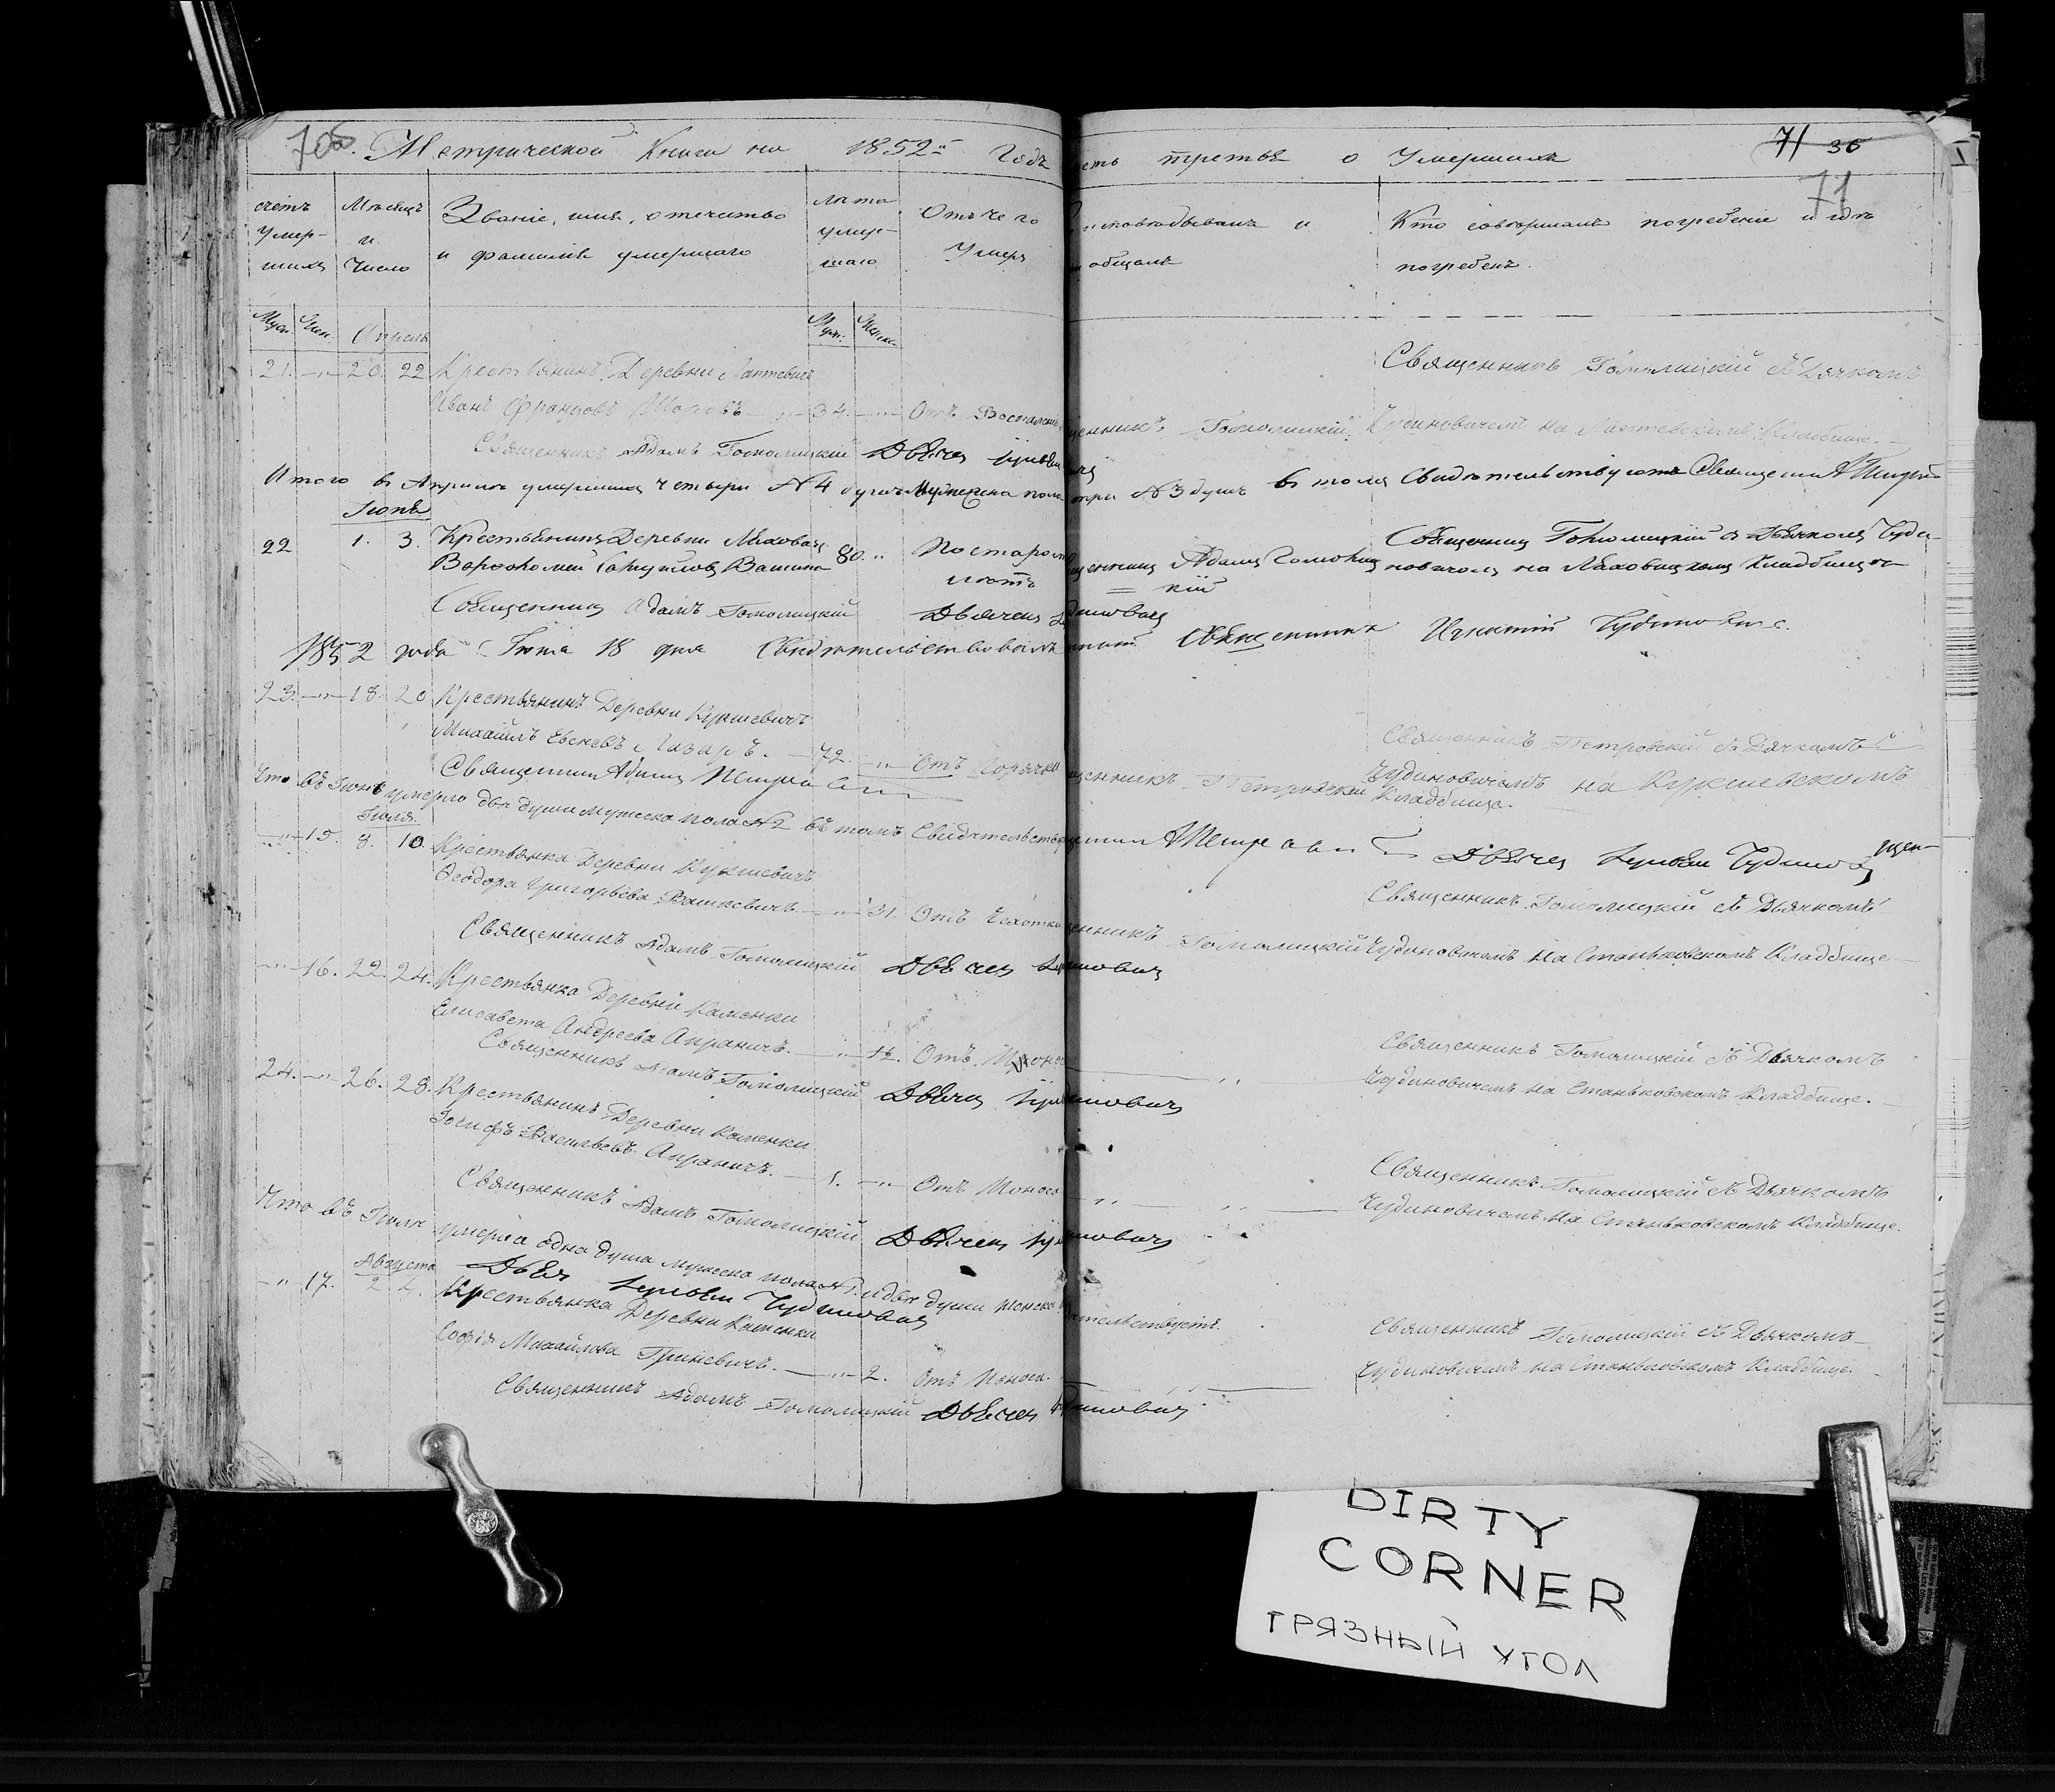 70об. Метрической Книги на 1852й Годъ
сть третья о Умершихъ
71 36
71
счетъ умер-шихъ
Мѣсяцъ и Число
Званіе, имя, отчество и фамилія умершаго
лѣта умер-шаго
Отъ чего Умеръ
исповѣдывалъ и общалъ
Кто совершалъ погребеніе и гдѣ погребенъ.
Муж. Жен. Апрель Муж. Женс.
21. 20. 22 Крестьянинъ Деревни
Иванъ Францовъ 34. Отъ Воспаленія
щенникъ Гомолицкій
Священникъ Гомолицкій съ Дячкомъ
Чудиновичемъ на Кладбище.
Священникъ Адамъ Гомолицкій Дьячекъ
Итого въ Априлѣ умершихъ четыри №4 душъ Мужеска пола
три №3 душъ въ томъ свидѣтельствуютъ Священникъ
Іюнь
22 1. 3. Крестьянинъ Деревни Ляховичъ
80. По старости
лѣтъ
щенникъ Адамъ Гомолиц
кій
Священникъ Гомолицкій съ Дьячкомъ Чуди-
новичемъ на Ляховицкомъ Кладбищѣ
Священникъ Адамъ Гомолицкій Дьячекъ диновичъ
1852 года Іюня 18 дня Свидѣтельствовалъ Священникъ Игнатій Чудиновичъ.
23. 18. 20 Крестьянинъ Деревни Кукшевичъ
Михаилъ Евсеевъ Лазаръ. 72. Отъ Горячки
щенникъ Петровскій
Священникъ Петровскій съ Дячкомъ
Чудиновичемъ на Кукшевскомъ
Кладбище.
Священникъ
Что въ Іюнѣ умерло двѣ души мужеска пола №2 въ томъ Свидѣтельству
Іюля.
Дьячекъ Чудинов
15. 8. 10. Крестьянка Деревни Кукшевичъ
Феодора Григорьева Вашкевичъ. 31. Отъ Чахотки
щенникъ Гомолицкій
Священникъ Гомолицкій съ Дьячкомъ
Чудиновичемъ на Станьковскомъ Кладбище
Священникъ Адамъ Гомолицкій Дьячекъ иновичъ
16. 22. 24. Крестьянка Деревни Каменки
Елисавета Андреева Апраничъ. Отъ Поноса
Священникъ Гомолицкій съ Дьячкомъ
Чудиновичемъ на Станьковскомъ Кладбище.
Священникъ Адамъ Гомолицкій Дьячекъ Чудиновичъ
24. 26. 28. Крестьянинъ Деревни Каменки
Іосифъ Васильевъ Апраничъ. 1. Отъ Поноса
Священникъ Гомолицкій съ Дьячкомъ
Чудиновичемъ на Станьковскомъ Кладбище.
Священникъ Адамъ Гомолицкій Дьячекъ Чудиновичъ
Что въ Іюлѣ умерла одна душа мужеска пола №1. и двѣ души женска
тельствуетъ.
Августа
Чудиновичъ
17. 2. 4. Крестьянка Деревни Каменки
Софія Михайлова Гриневичъ. 2. Отъ Поноса.
Священникъ Гомолицкій съ Дьячкомъ
Чудиновичемъ на Станьковскомъ Кладбище.
Священникъ Адамъ Гомолицкій Дьячекъ Чудиновичъ
DIRTY
CORNER
ГРЯЗНЫЙ УГОЛ